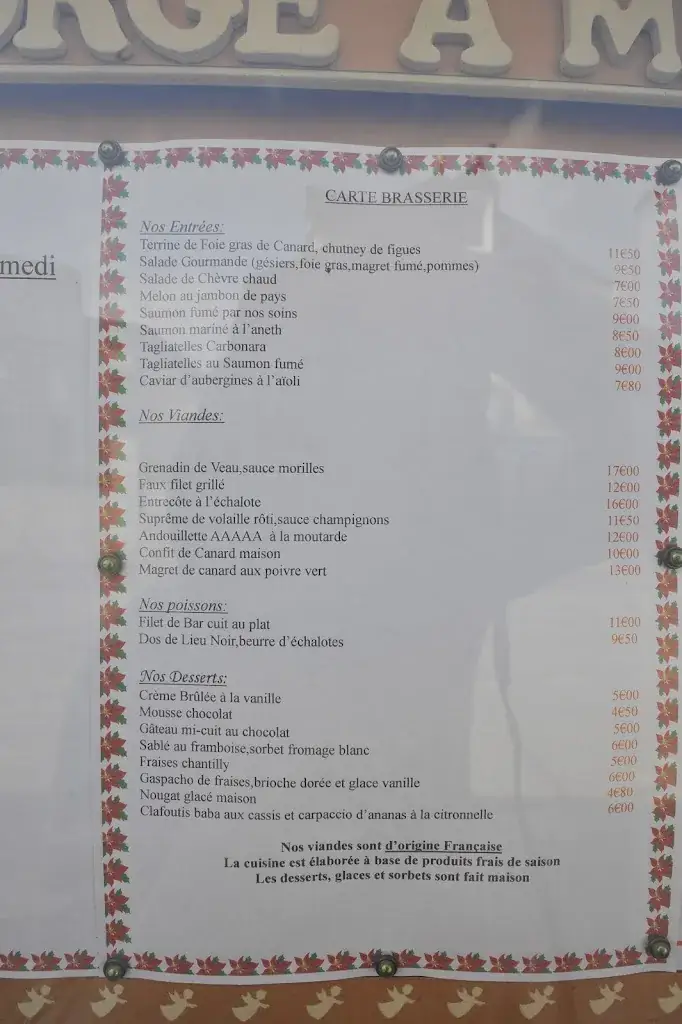 ORGE A M
medi
CARTE BRASSERIE
Nos Entrées:
Terrine de Foie gras de Canard, chutney de figues 11€50
Salade Gourmande (gésiers,foie gras,magret fumé,pommes) 9€50
Salade de Chèvre chaud 7€00
Melon au jambon de pays 7€50
Saumon fumé par nos soins 9€00
Saumon mariné à l'aneth 8€50
Tagliatelles Carbonara 8€00
Tagliatelles au Saumon fumé 9€00
Caviar d'aubergines à l'aïoli 7€80
Nos Viandes:
Grenadin de Veau,sauce morilles 17€00
Faux filet grillé 12€00
Entrecôte à l'échalote 16€00
Suprême de volaille rôti,sauce champignons 11€50
Andouillette AAAAA à la moutarde 12€00
Confit de Canard maison 10€00
Magret de canard aux poivre vert 13€00
Nos poissons:
Filet de Bar cuit au plat 11€00
Dos de Lieu Noir,beurre d'échalotes 9€50
Nos Desserts:
Crème Brûlée à la vanille 5€00
Mousse chocolat 4€50
Gâteau mi-cuit au chocolat 5€00
Sablé au framboise,sorbet fromage blanc 6€00
Fraises chantilly 5€00
Gaspacho de fraises,brioche dorée et glace vanille 6€00
Nougat glacé maison 4€80
Clafoutis baba aux cassis et carpaccio d'ananas à la citronnelle 6€00
Nos viandes sont d'origine Française
La cuisine est élaborée à base de produits frais de saison
Les desserts, glaces et sorbets sont fait maison